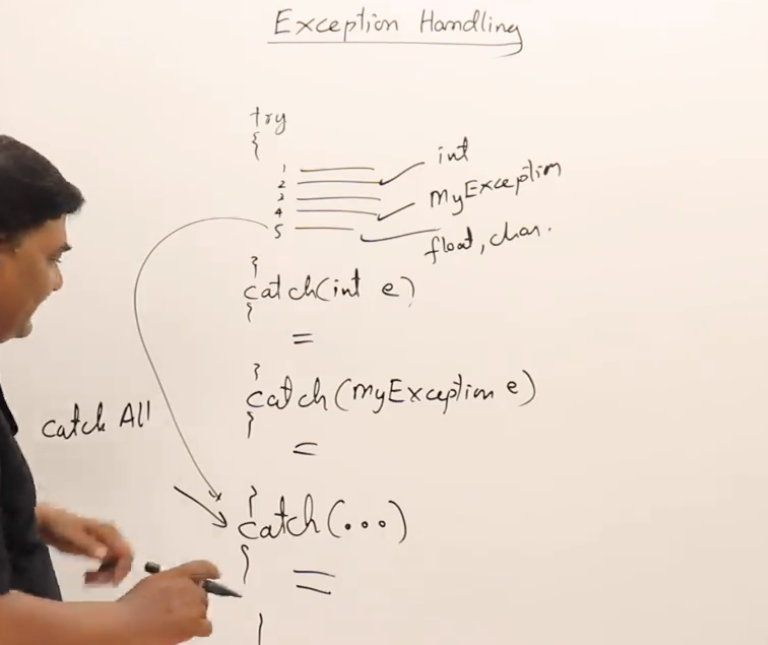 Exception Handling
try
{
1
2
3
4
5
int
MyException
float, char.
}
catch(int e)
{
=
}
catch(MyException e)
{
=
catch All
}
catch(...)
{
=
}